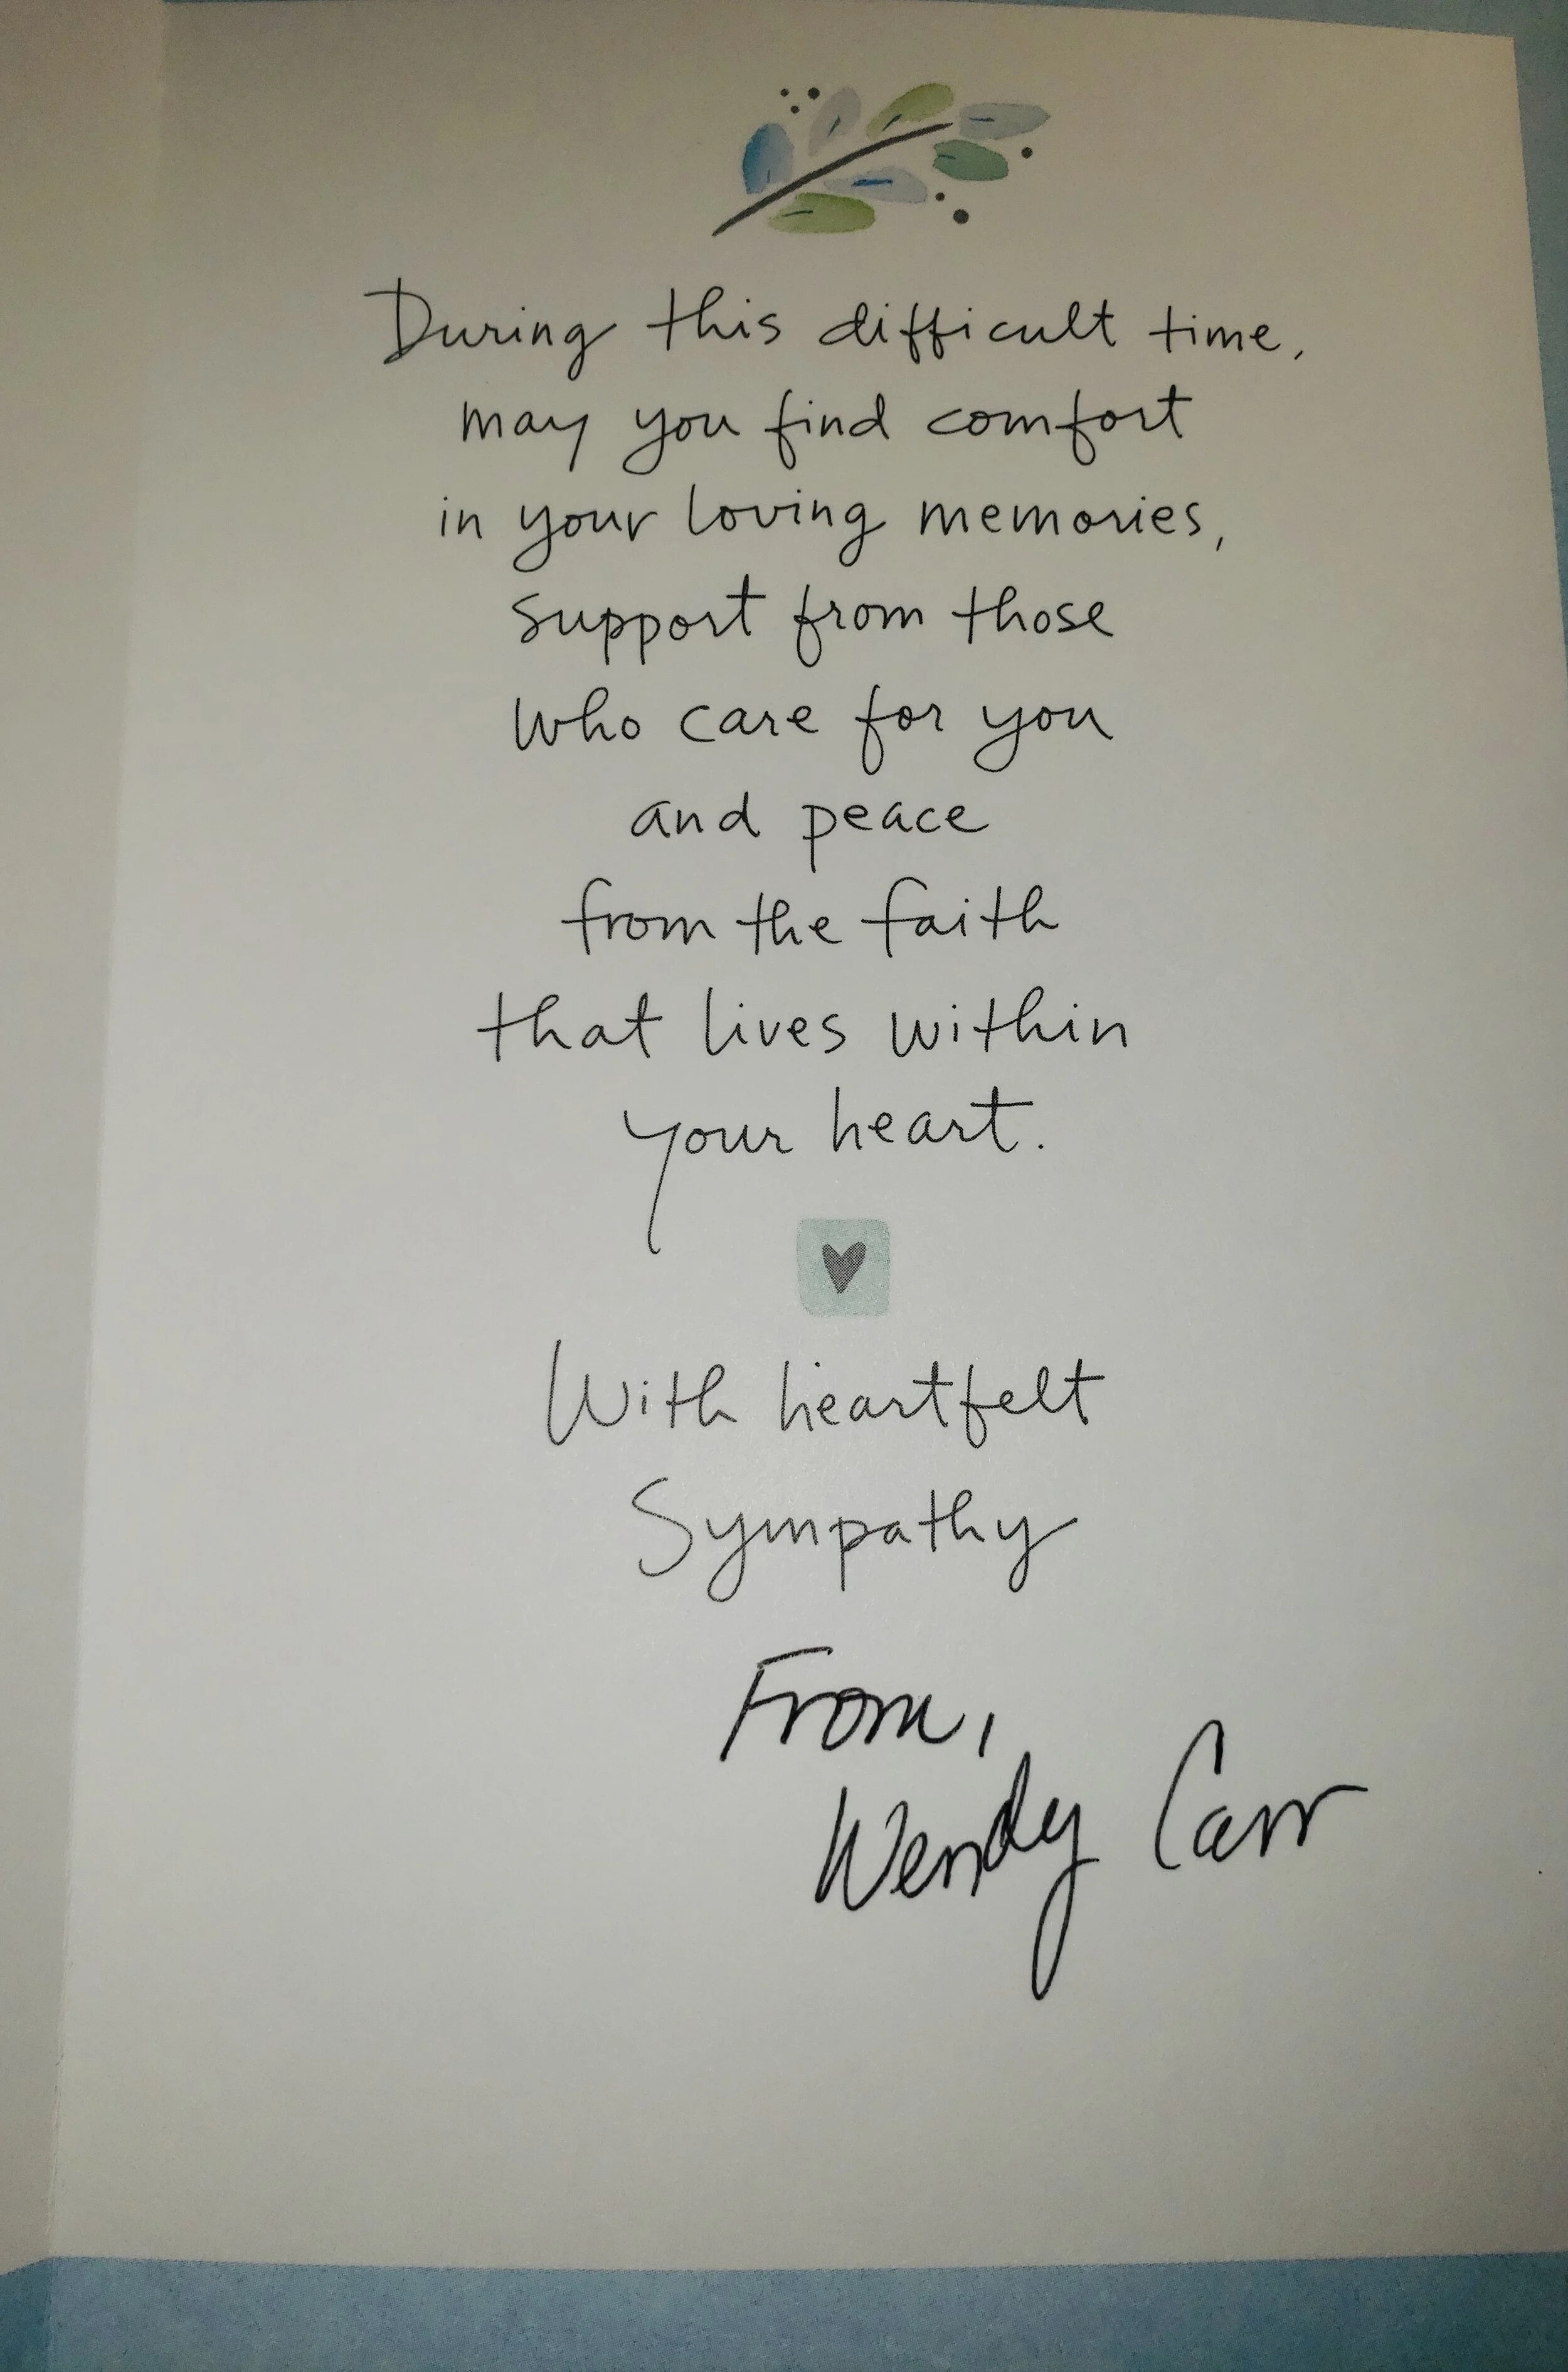 During this difficult time,
may you find comfort
in your loving memories,
support from those
who care for you
and peace
from the faith
that lives within
your heart.
With heartfelt
Sympathy
From,
Wendy Carr